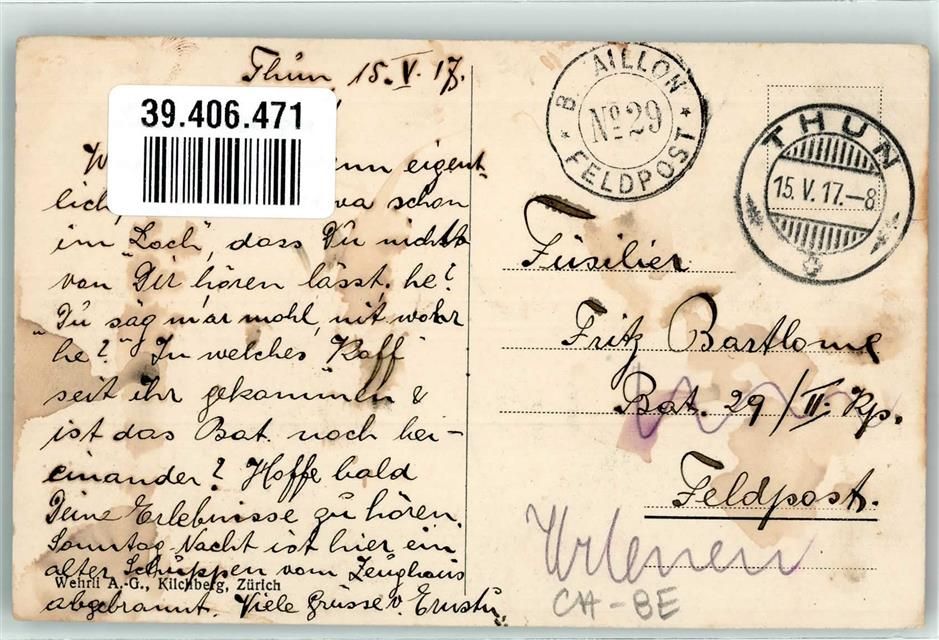 Thun, 15. V. 17.
39.406.471
W
nn eigent-
lich,
va schon
im Loch", dass Du nichts
von Dir hören lässt, he?
"Du säg mär mohl, nit wohr
he?" In welches Kaff
seit ihr gekommen &
ist das Bat. noch bei-
einander? Hoffe bald
Deine Erlebnisse zu hören.
Sonntag Nacht ist hier ein
alter Schuppen vom Zeughaus
Wehrli A.-G., Kilchberg, Zürich
abgebrannt. Viele Grüsse v. Ernst
BAILLON
No 29
FELDPOST
THUN
15. V. 17.–8
Füsilier
Fritz Bartlome
Bat. 29/II. Kp.
Feldpost.
Urtenen
CH-BE